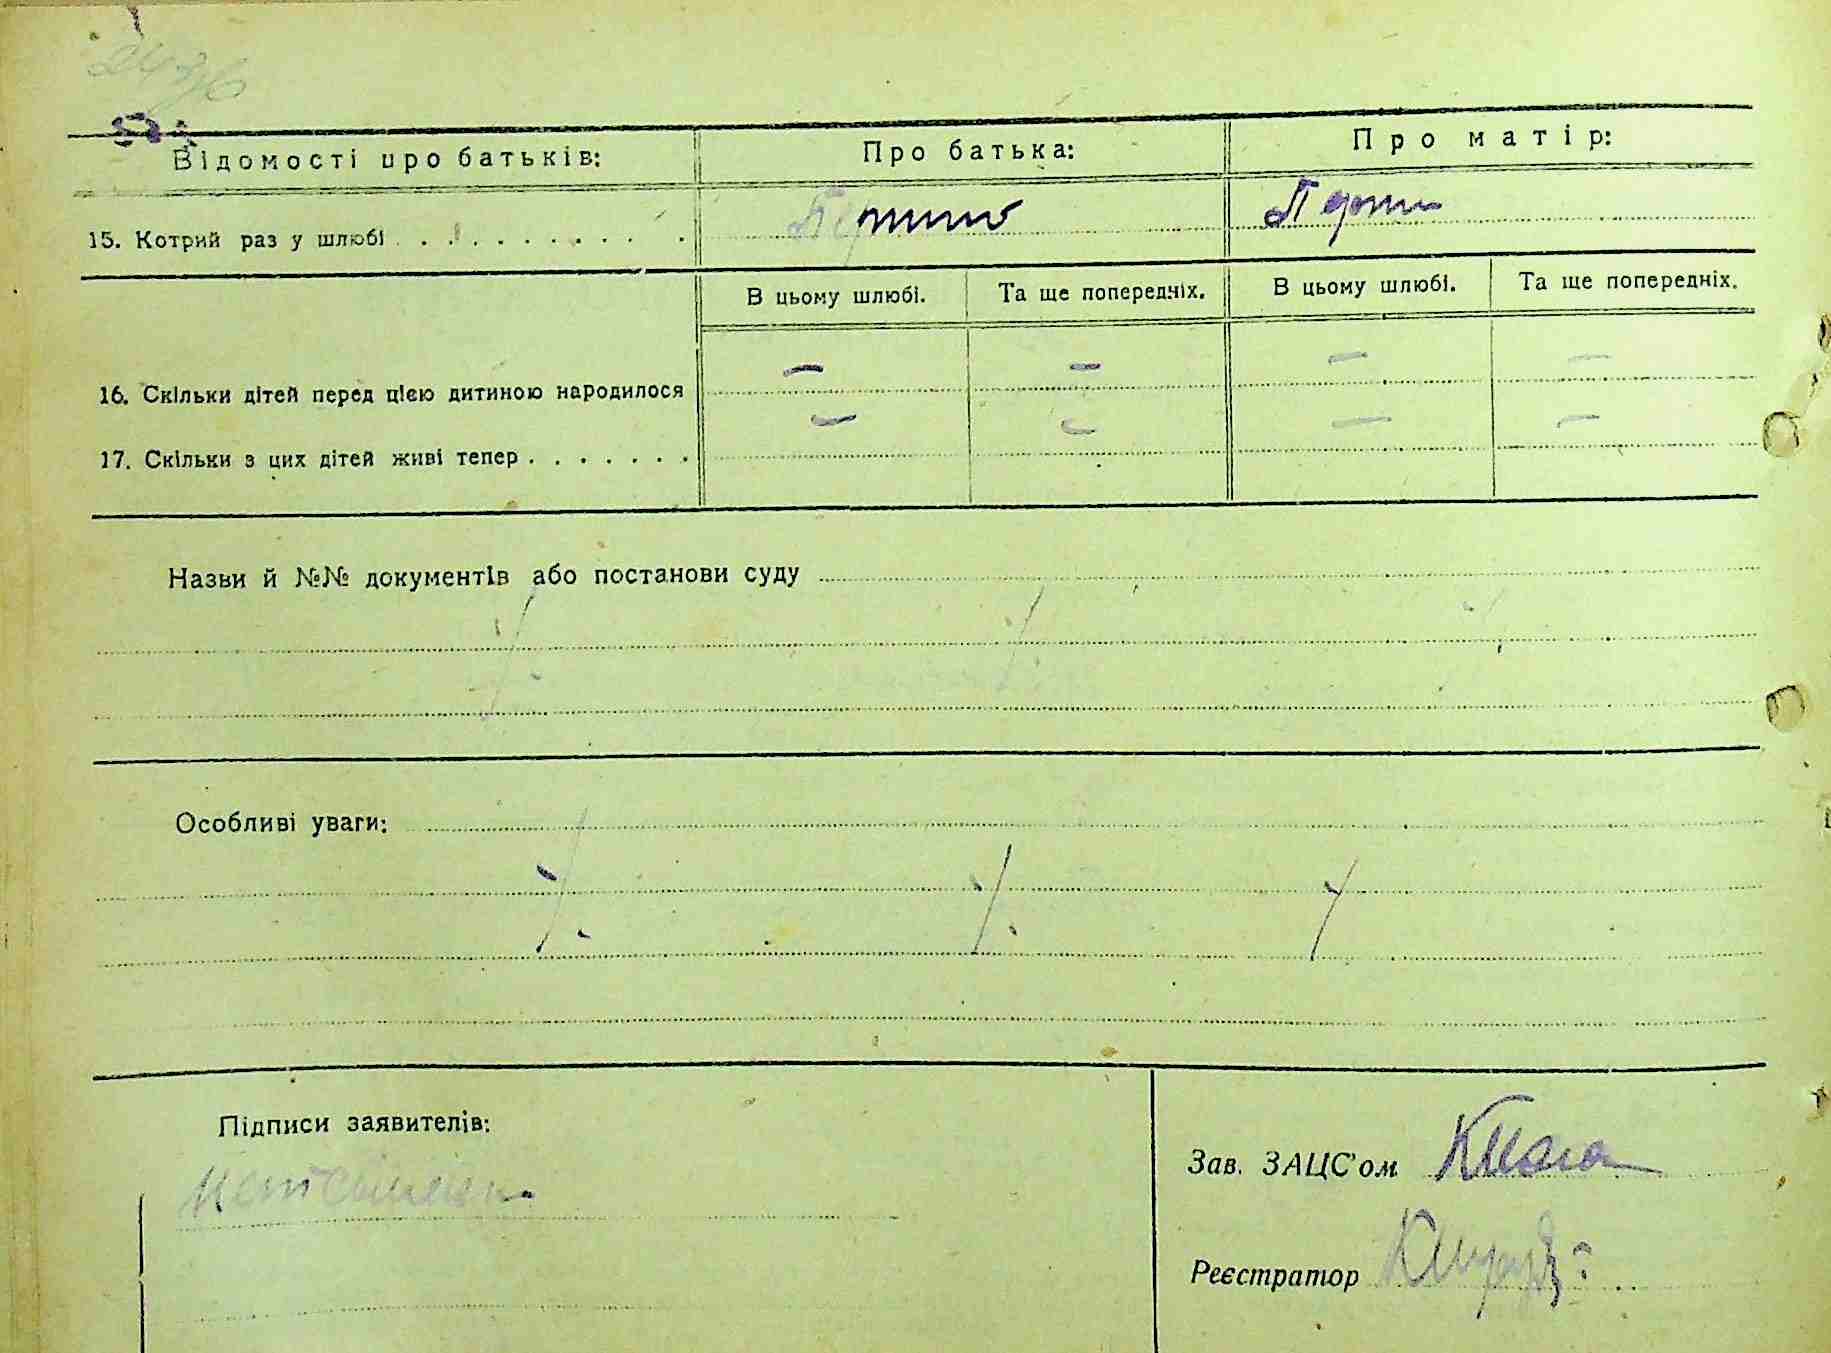 Відомості про батьків: Про батька: Про матір:
15. Котрий раз у шлюбі . . . . . . . . . .
В цьому шлюбі. Та ще попередніх. В цьому шлюбі. Та ще попередніх.
16. Скільки дітей перед цією дитиною народилося – – – –
17. Скільки з цих дітей живі тепер . . . . . . . – – – –
Назви й №№ документів або постанови суду
Особливі уваги:
Підписи заявителів:
Зав. ЗАЦС'ом
Реєстратор